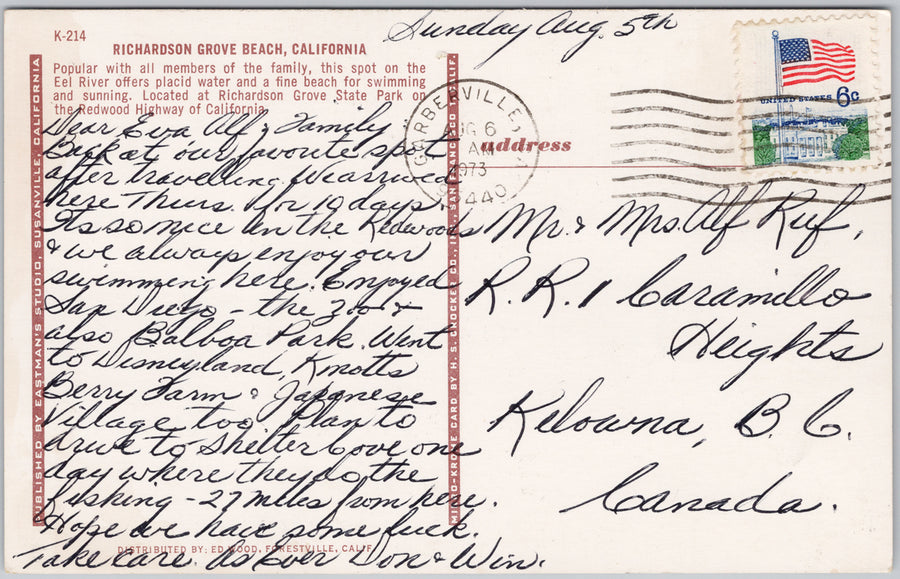 Sunday Aug. 5th
K-214
RICHARDSON GROVE BEACH, CALIFORNIA
Popular with all members of the family, this spot on the
Eel River offers placid water and a fine beach for swimming
and sunning. Located at Richardson Grove State Park on
the Redwood Highway of California.
Dear Eva Alf & Family
Back at our favorite spot
after travelling. We arrived
here Thurs. for 10 days.
Its so nice in the Redwoods
& we always enjoy our
swimming here. Enjoyed
San Diego - the zoo &
also Balboa Park. Went
to Disneyland, Knotts
Berry Farm & Japanese
Village too. Plan to
drive to Shelter Cove one
day where they do the
fishing - 27 miles from here.
Hope we have some luck.
Take care. As Ever Don & Win.
DISTRIBUTED BY: ED WOOD, FORESTVILLE, CALIF.
PUBLISHED BY EASTMAN'S STUDIO, SUSANVILLE, CALIFORNIA
MIRRO-KROME CARD BY H. S. CROCKER CO., INC., SAN FRANCISCO 1, CALIF.
GARBERVILLE
AUG 6
AM
1973
95440
UNITED STATES 6c
address
Mr. & Mrs. Alf Ruf,
R.R. 1 Caramillo
Heights
Kelowna, B.C.
Canada.